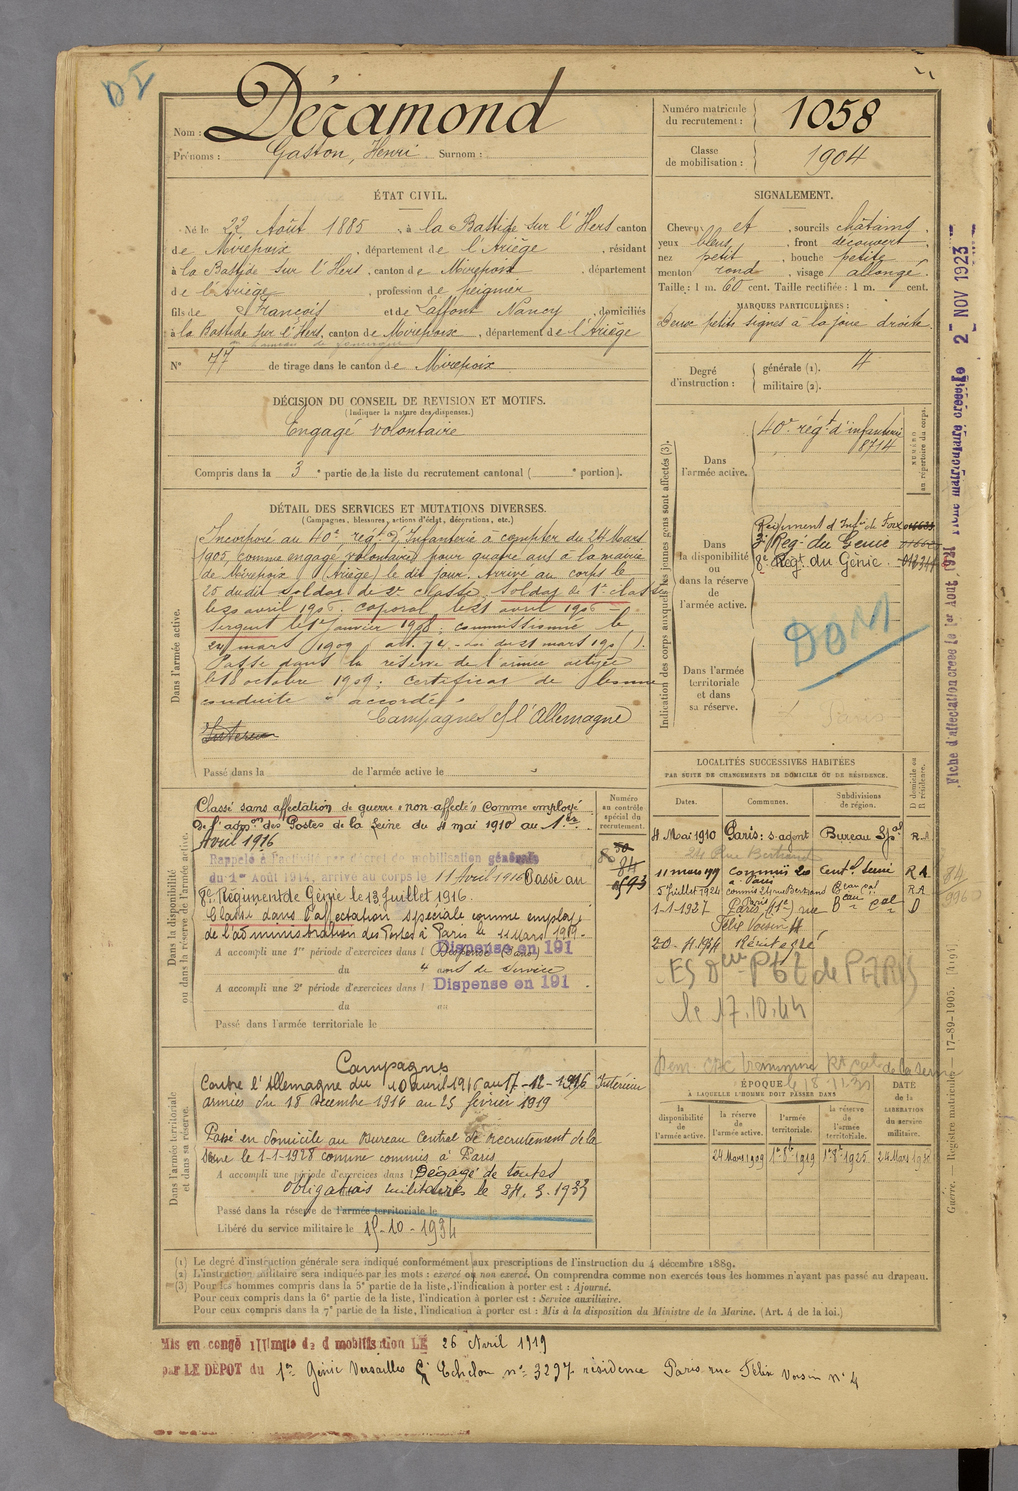 DI
Nom : Déramond
Prénoms : Gaston, Henri Surnom :
Numéro matricule du recrutement : 1058
Classe de mobilisation : 1904
ÉTAT CIVIL.
Né le 22 Août 1885, à la Bastide sur l'Hers canton
de Mirepoix, département de l'Ariège, résidant
à la Bastide sur l'Hers, canton de Mirepoix, département
de l'Ariège, profession de peigneur
fils de François et de Laffont Nancy, domiciliés
à la Bastide sur l'Hers, canton de Mirepoix, département de l'Ariège
N° 77 de tirage dans le canton de Mirepoix
SIGNALEMENT.
Cheveux et, sourcils châtains,
yeux bleus, front découvert,
nez petit, bouche petite,
menton rond, visage allongé.
Taille : 1 m. 60 cent. Taille rectifiée : 1 m. cent.
MARQUES PARTICULIÈRES :
Deux petits signes à la joue droite.
Degré d'instruction : générale (1). 4
militaire (2).
DÉCISION DU CONSEIL DE REVISION ET MOTIFS.
(Indiquer la nature des dispenses.)
Engagé volontaire
Compris dans la 3e partie de la liste du recrutement cantonal ( e portion).
DÉTAIL DES SERVICES ET MUTATIONS DIVERSES.
(Campagnes, blessures, actions d'éclat, décorations, etc.)
Dans l'armée active.
Incorporé au 40e régt d'Infanterie à compter du 24 Mars
1905, comme engagé volontaire pour quatre ans à la mairie
de Mirepoix (Ariège) le dit jour. Arrivé au corps le
25 du dit soldat de 2e classe. Soldat de 1e classe
le 20 avril 1906. caporal le 21 avril 1906
Sergent le 1er janvier 1908. commissionné le
24 mars 1909
Passé dans la réserve de l'armée active
le 18 octobre 1909. certificat de bonne
conduite accordé.
Campagnes c/ l'Allemagne
Intérieur
Passé dans la de l'armée active le
Indication des corps auxquels les jeunes gens sont affectés (3).
NUMÉRO au répertoire du corps.
Dans l'armée active.
40e régt d'infanterie
8714
Dans la disponibilité ou dans la réserve de l'armée active.
Régiment d'Infie de Foix
3e Régt du Génie
8e Régt du Génie.
DOM
Dans l'armée territoriale et dans sa réserve.
Fiche d'affectation créée le 1er Aout 1921 Fiche matriculaire créée le 2 NOV 1923
LOCALITÉS SUCCESSIVES HABITÉES
PAR SUITE DE CHANGEMENTS DE DOMICILE OU DE RÉSIDENCE.
Dates. Communes. Subdivisions de région. D domicile ou R résidence.
4 Mai 1910 Paris : s. agent Bureau Spal R.A
24 Rue Bertrand
11 mars 1919 Commis à Paris Centl Seine R A
5 juillet 1924 commis 24 rue Bertrand Beau cal R A
1-1-1927 Paris (11e) rue Beau cal D
Félix Voisin 4
20-4-1944
le 17.10.44
Dans la disponibilité ou dans la réserve de l'armée active.
Numéro au contrôle spécial du recrutement.
Classé sans affectation de guerre "non affecté" comme employé
de l'admon des Postes de la Seine du 4 mai 1910 au 1er
Avril 1916
Rappelé à l'activité par décret de mobilisation générale
du 1er Août 1914, arrivé au corps le 11 Avril 1916 Passé au
8e Régiment de Génie le 13 Juillet 1916.
Classé dans l'affectation spéciale comme employé
de l'administration des Postes à Paris le 11 Mars 1919.
A accompli une 1re période d'exercices dans l Dispense en 191
du 4 ans de service
A accompli une 2e période d'exercices dans l Dispense en 191
du au
Passé dans l'armée territoriale le
Dans l'armée territoriale et dans sa réserve.
Campagnes
Contre l'Allemagne du 10 avril 1916 au 17-12-1916 Intérieur
armées du 18 Décembre 1916 au 25 février 1919
Passé en domicile au Bureau Central de recrutement de la
Seine le 1-1-1928 comme commis à Paris
A accompli une période d'exercices dans l Dégagé de toutes
obligations militaires le
Passé dans la réserve de l'armée territoriale le
Libéré du service militaire le 15-10-1934
ÉPOQUE
À LAQUELLE L'HOMME DOIT PASSER DANS
DATE de la LIBÉRATION du service militaire.
la disponibilité de l'armée active. la réserve de l'armée active. l'armée territoriale. la réserve de l'armée territoriale.
24 Mars 1909 1er 8bre 1919 1er 8bre 1925
Guerre. Registre matricule. — 17-89-1905. [4191]
(1) Le degré d'instruction générale sera indiqué conformément aux prescriptions de l'instruction du 4 décembre 1889.
(2) L'instruction militaire sera indiquée par les mots : exercé ou non exercé. On comprendra comme non exercés tous les hommes n'ayant pas passé au drapeau.
(3) Pour les hommes compris dans la 5e partie de la liste, l'indication à porter est : Ajourné.
Pour ceux compris dans la 6e partie de la liste, l'indication à porter est : Service auxiliaire.
Pour ceux compris dans la 7e partie de la liste, l'indication à porter est : Mis à la disposition du Ministre de la Marine. (Art. 4 de la loi.)
Mis en congé illimité de démobilisation LE 26 Avril 1919
par LE DÉPOT du 1er Génie Versailles Echelon n° 3297 résidence Paris rue Félix Voisin n° 4